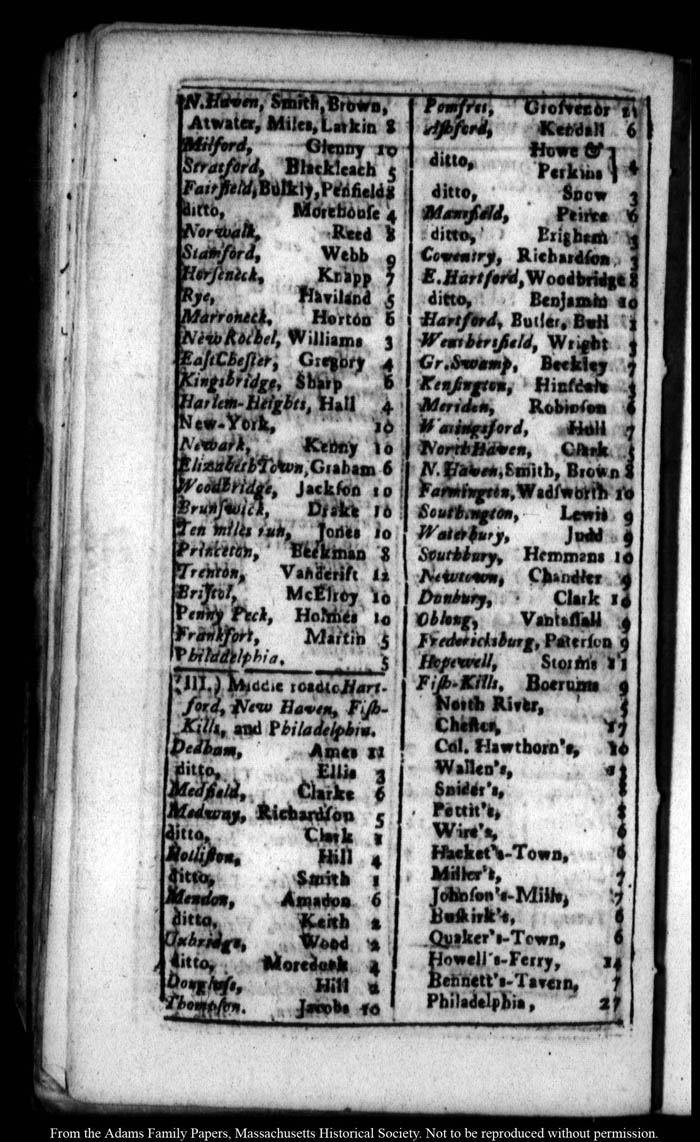 N. Haven, Smith, Brown,
Atwater, Miles, Larkin 8
Milford, Glenny 10
Stratford, Blackleach 5
Fairfield, Bulkly, Penfield 8
ditto, Morehouſe 4
Norwalk, Reed 8
Stamford, Webb 9
Horſeneck, Knapp 7
Rye, Haviland 5
Marroneck, Horton 6
New Rochel, Williams 3
Eaſt Cheſter, Gregory 4
Kingsbridge, Sharp 6
Harlem-Heights, Hall 4
New-York, 10
Newark, Kenny 10
Elizabeth Town, Graham 6
Woodbridge, Jackſon 10
Brunſwick, Drake 10
Ten miles run, Jones 10
Princeton, Beekman 8
Trenton, Vanderift 12
Briſtol, McElroy 10
Penny Peck, Holmes 10
Frankfort, Martin 5
Philadelphia. 5
(III.) Middle road to Hart-
ford, New Haven, Fiſh-
Kills, and Philadelphia.
Dedham, Ames 11
ditto, Ellis 3
Medfield, Clarke 6
Medway, Richardſon 5
ditto, Clark
Holliſton, Hill 4
ditto, Smith 1
Mendon, Amadon 6
ditto, Keith 2
Uxbridge, Wood 2
ditto, Moredock
Douglaſs, Hill
Thompſon. Jacobs 10
Pomfret, Groſvenor
Aſhford, Kendall 6
ditto, Howe &
Perkins } 4
ditto, Snow 3
Mansfield, Peirce 6
ditto, Brigham 3
Coventry, Richardſon, 3
E. Hartford, Woodbridge 8
ditto, Benjamin 10
Hartford, Butler, Bull 1
Weathersfield, Wright 3
Gr. Swamp, Beckley 7
Kenſington, Hinſdale 3
Meriden, Robinſon 6
Walingsford, Hall 7
North Haven, Clark 5
N. Haven, Smith, Brown 8
Farmington, Wadſworth 10
Southington, Lewis 9
Waterbury, Judd 9
Southbury, Hemmans 10
Newtown, Chandler 9
Danbury, Clark 10
Oblong, Vantaſſall 9
Fredericksburg, Paterſon 9
Hopewell, Storms 11
Fiſh-Kills, Boerums 9
North River, 5
Cheſter, 17
Col. Hawthorn's, 10
Wallen's,
Snider's, 8
Pettit's, 8
Wire's, 6
Hacket's-Town, 6
Miller's, 7
Johnſon's-Mills, 7
Buſkirk's, 6
Quaker's-Town, 6
Howell's-Ferry, 14
Bennett's-Tavern, 7
Philadelphia, 27
From the Adams Family Papers, Massachusetts Historical Society. Not to be reproduced without permission.